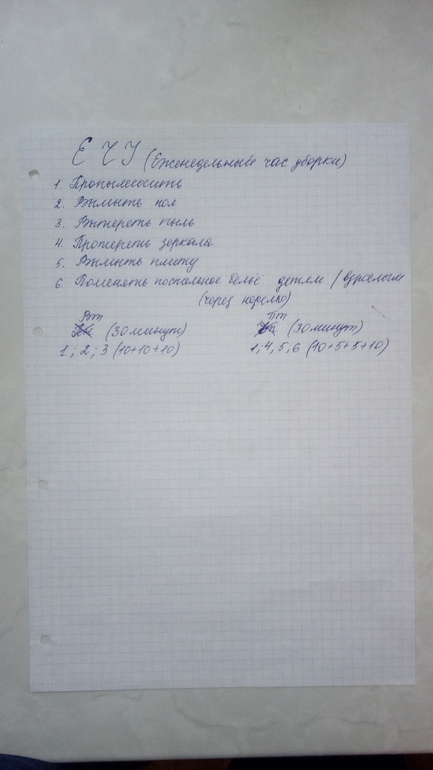 ЕЧУ (Еженедельный час уборки)
1. Пропылесосить
2. Вымыть пол
3. Вытереть пыль
4. Протереть зеркала
5. Вымыть плиту
6. Поменять постельное бельё детям / взрослым
(через неделю)
Вт Пт
(30 минут) (30 минут)
1; 2; 3 (10+10+10) 1; 4, 5, 6 (10+5+5+10)